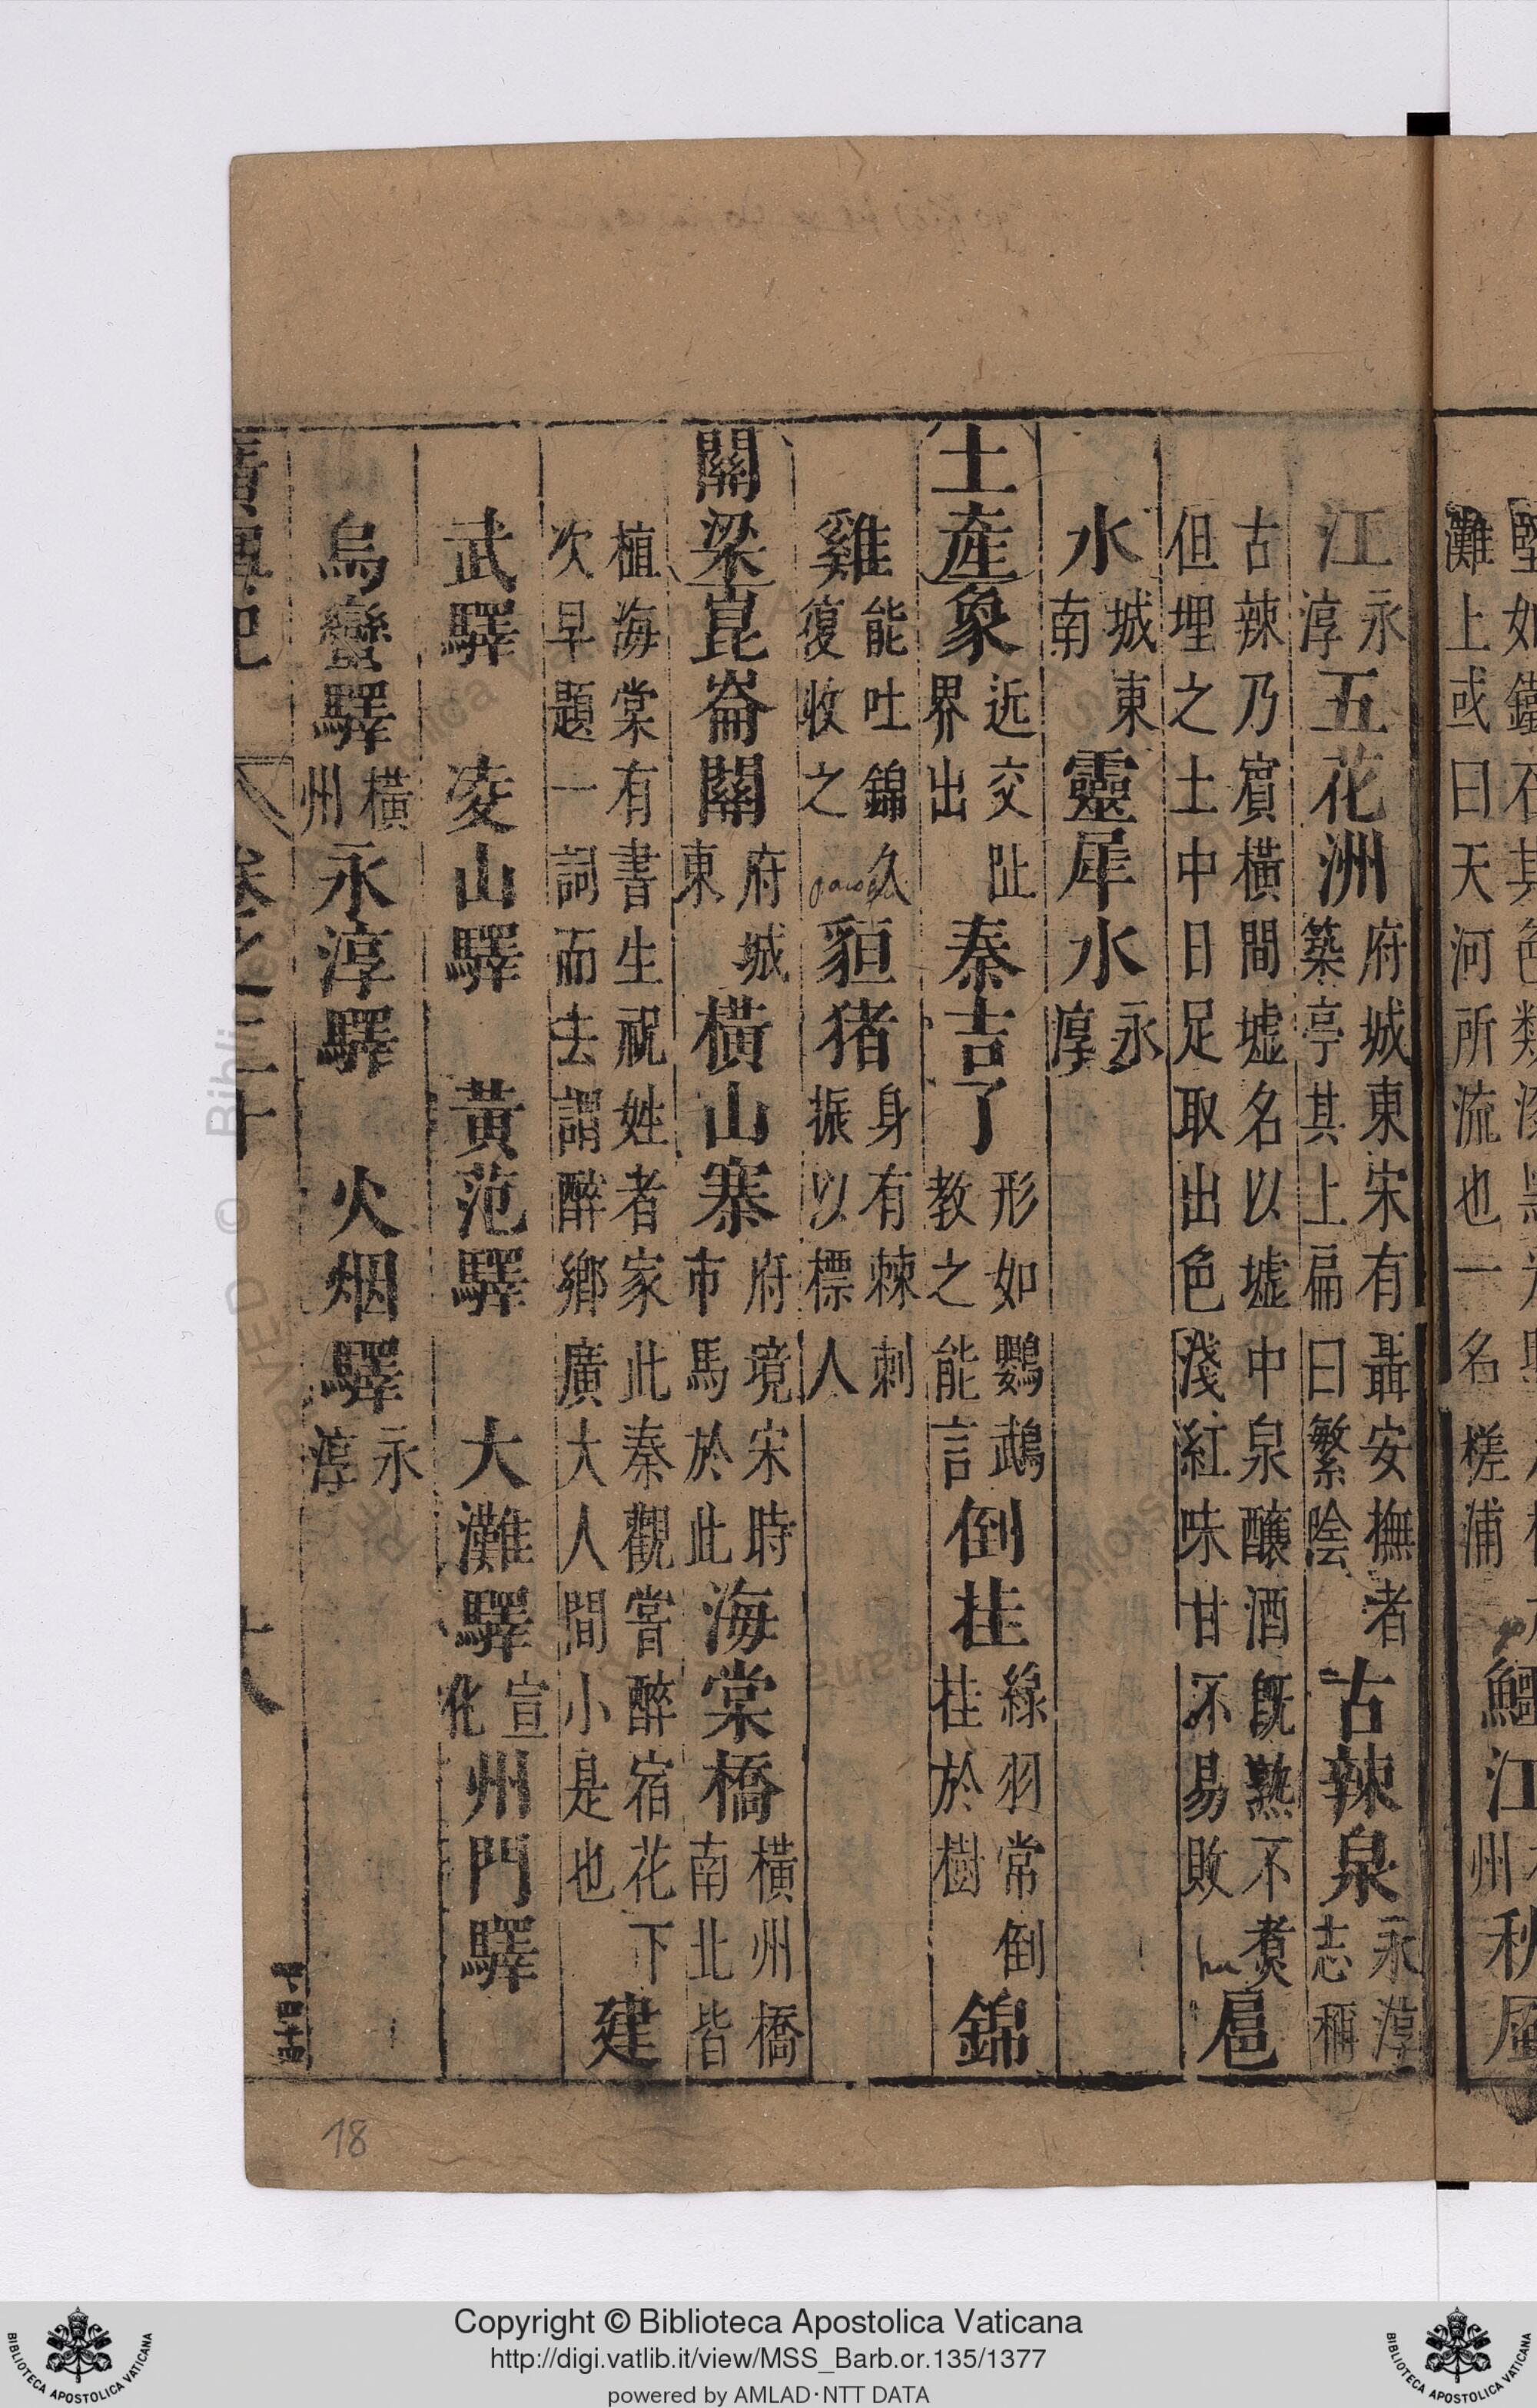 灘上或曰天河所流也一名 槎浦
江永淳五花洲府城東宋有聶安撫者築亭其上扁曰繁陰古辣泉永淳志稱
古辣乃賓橫間墟名以墟中泉釀酒既熟不煑但埋之土中日足取出色淺紅味甘不易敗扈
水城東南靈犀水永淳
土產象近交趾界出秦吉了形如鸚鵡教之能言倒挂綠羽常倒挂於樹錦
雞能吐錦久復收之貆猪身有棘刺振以標人
關梁崑崙關府城東橫山寨府境宋時市馬於此海棠橋橫州橋南北皆
植海棠有書生祝姓者家此秦觀嘗醉宿花下次早題一詞而去謂醉鄉廣大人間小是也建
武驛 凌山驛 黃范驛 大灘驛宣化州門驛
烏蠻驛橫州永淳驛 火烟驛永淳
卷之二十
18
Copyright © Biblioteca Apostolica Vaticana
http://digi.vatlib.it/view/MSS_Barb.or.135/1377
powered by AMLAD·NTT DATA
BIBLIOTECA APOSTOLICA VATICANA
BIBLIOTECA APOSTOLICA VATICANA